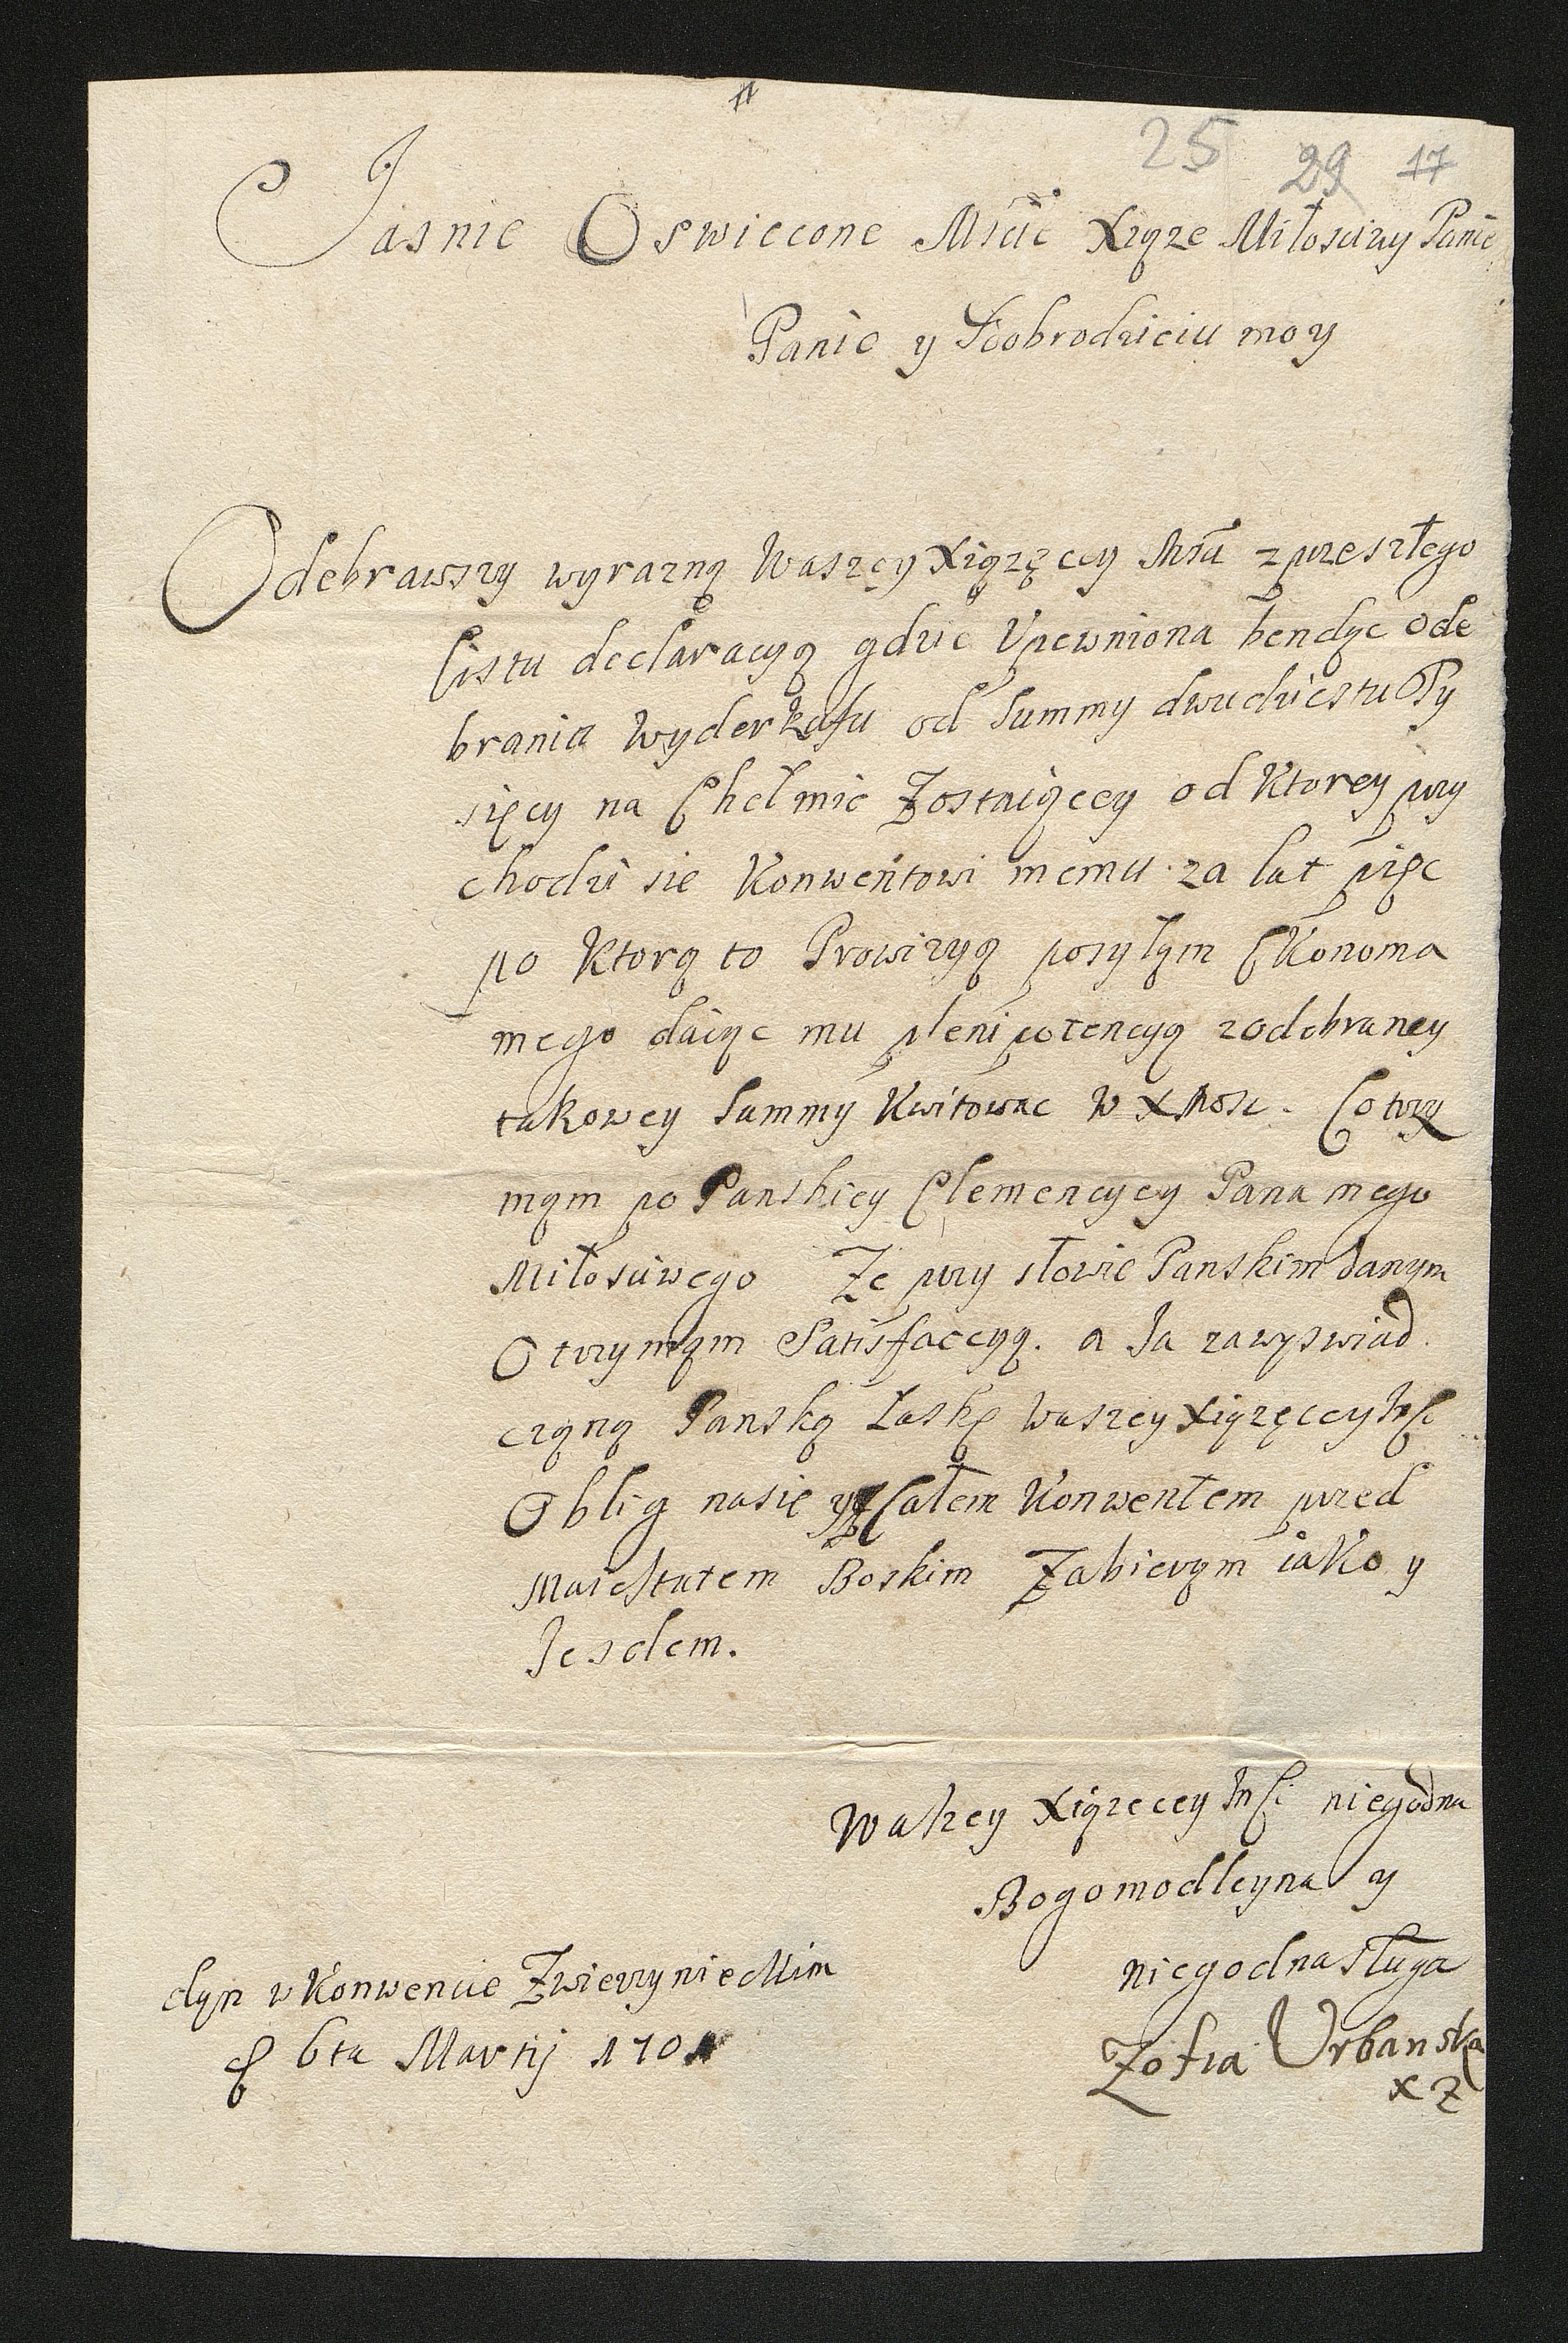 25 29 17
Jasnie Oswiecone Mscie Xiąze Miłosciwy Panie
Panie y Dobrodzieiu moy
Odebrawszy wyrazną Waszey Xiązęcey Msci z przeszłego
listu declaracyą gdzie Upewniona bendąc ode
brania Wyderkafu od Summy dwudziestu Ty
sięcy na Chełmie Zostaiącey od Ktorey przy
chodzi sie Konwentowi memu za lat pięc
po Ktorą to Prowizyą posyłąm Ekonoma
mego daiąc mu plenipotencyą z odebraney
takowey Summy Kwitowac W X Mosc. Co trzy
mąm po Panskiey Clemencyey Pana mego
Miłosciwego Ze przy słowie Panskim danym
Otrzymąm Satisfaccyą. a Ja zawyswiad
cząną Panską Łaskę Waszey Xiązęcey Msci
Oblig nasie y z Całem Konwentem przed
Maiestatem Boskim Zabierąm iako y
Jesdem.
Waszey Xiązecey Msci niegodna
Bogomodleyna y
niegodna sługa
Zofia Urbanska
X Z
dąn w Konwencie Zwierzynieckim
6ta Martij 1701